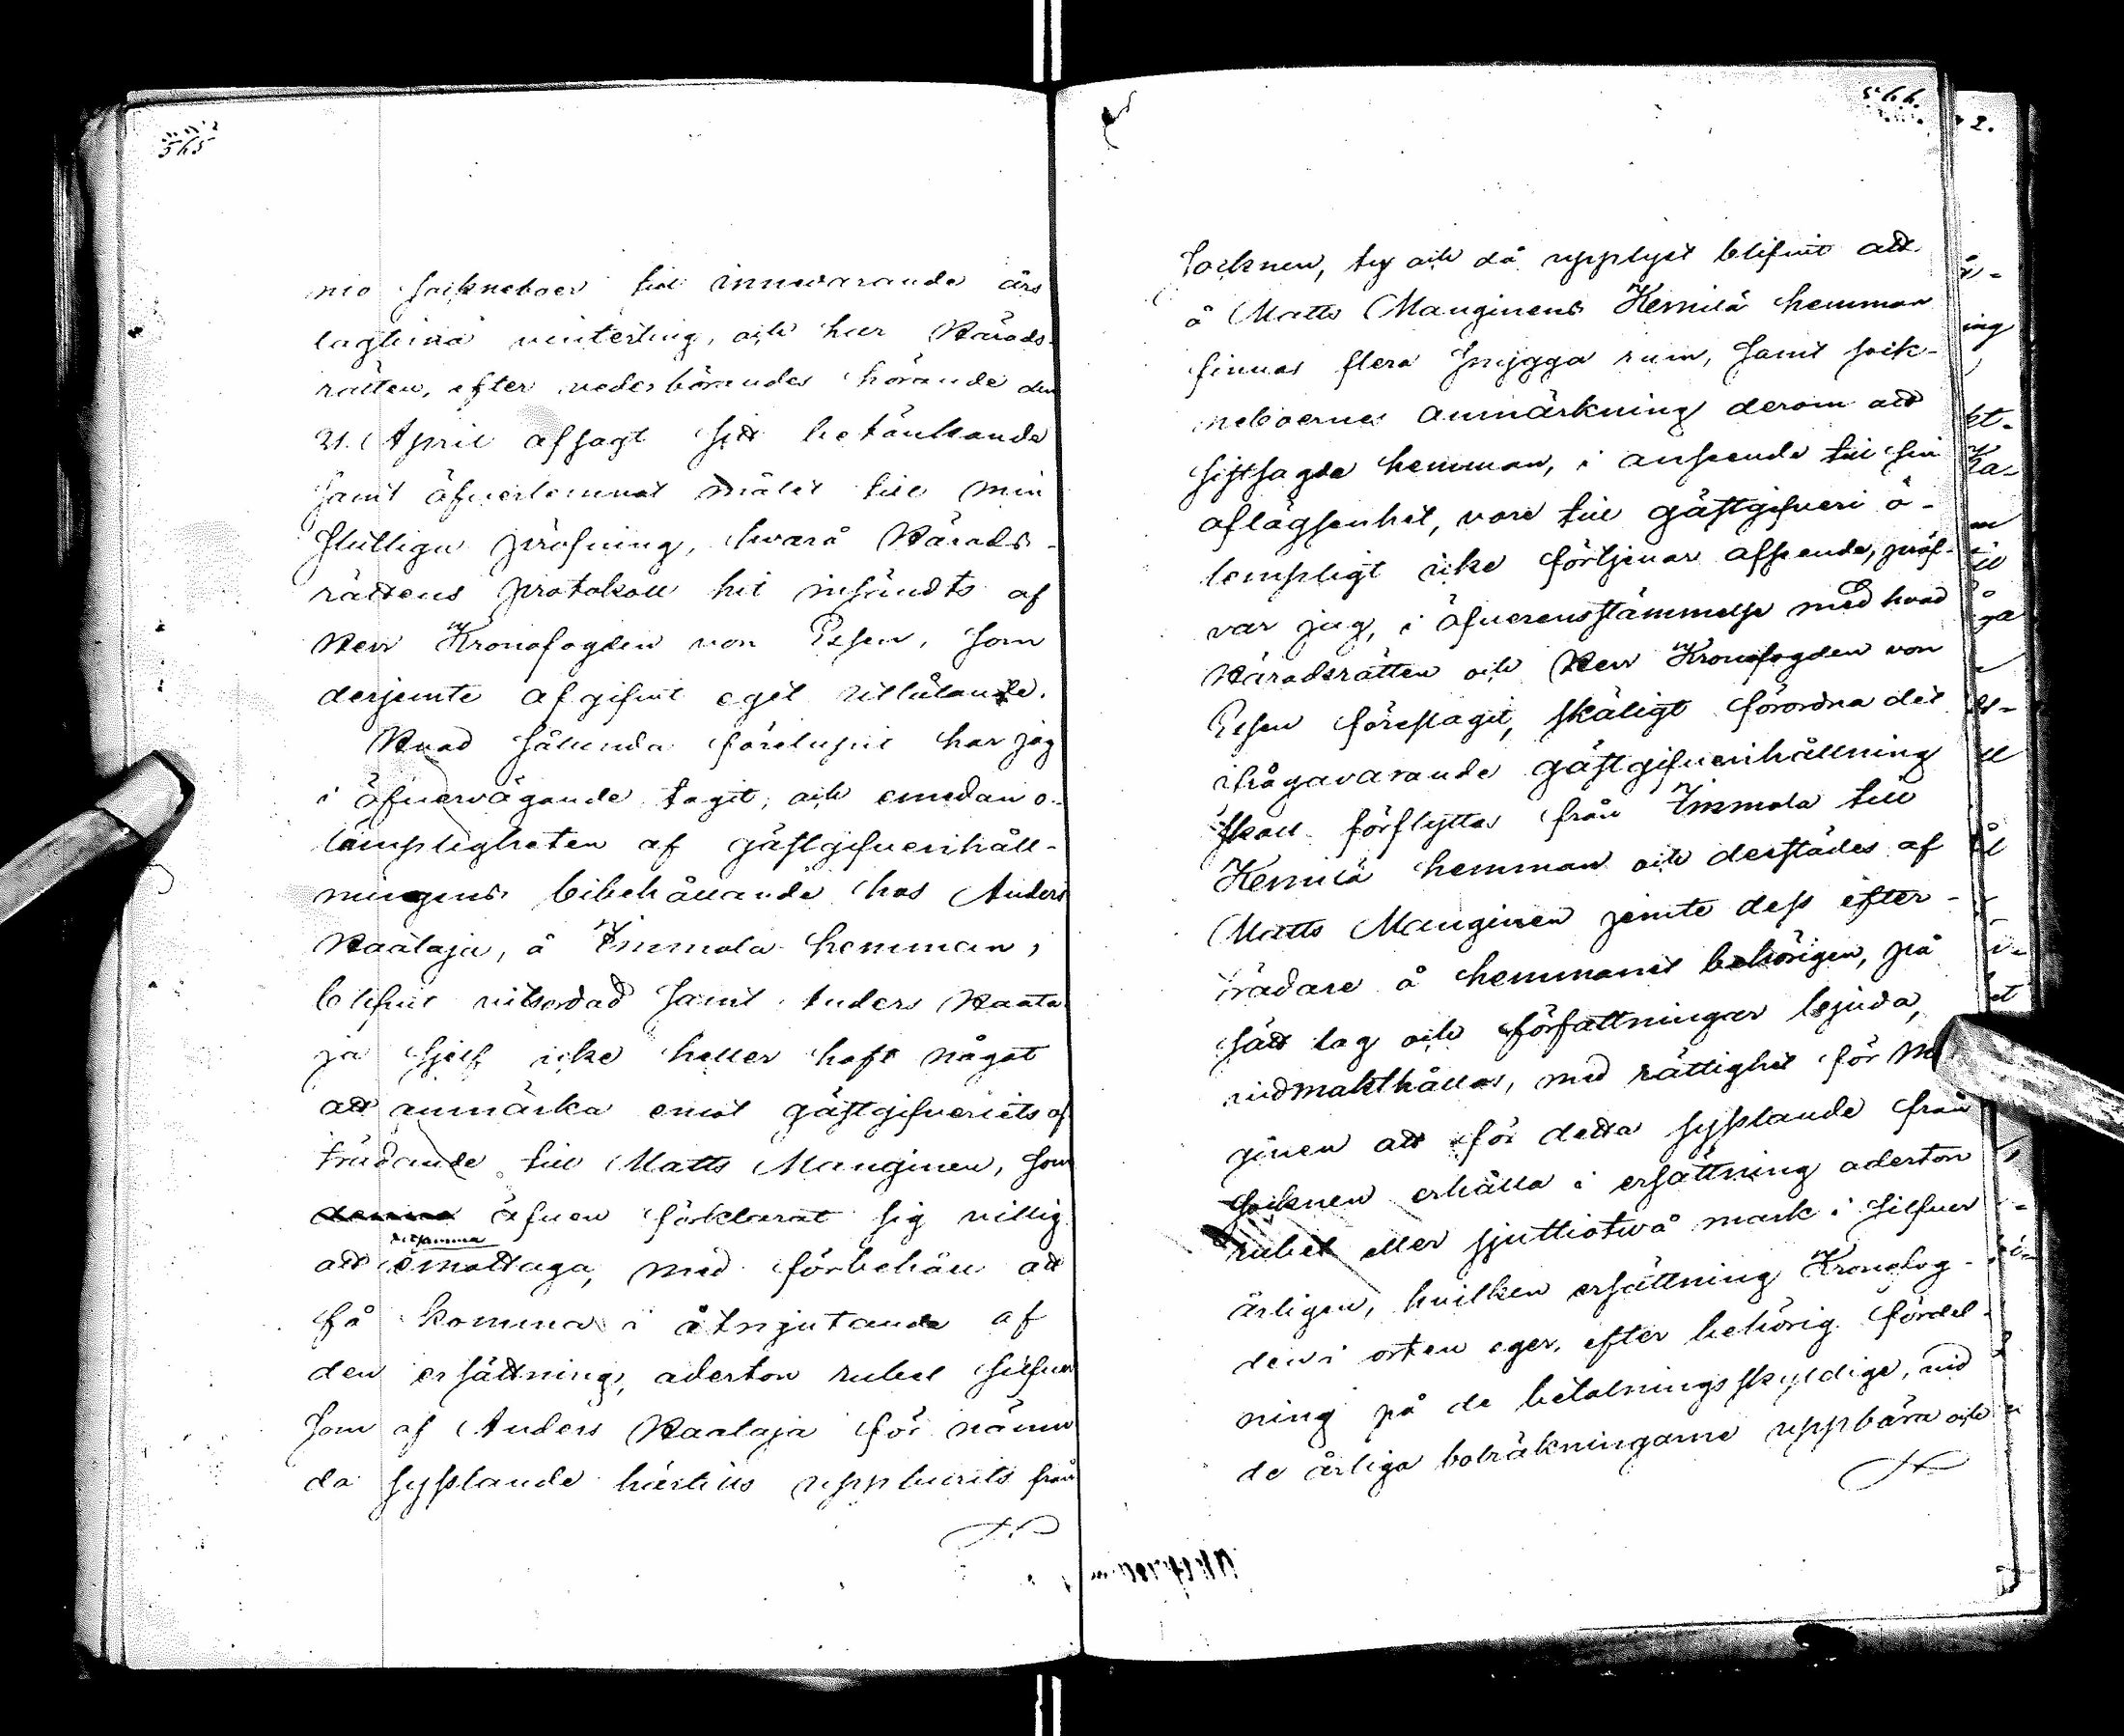 565
mo sockneboer till innevarande års
lagtima vinterting, och har Härads-
rätten, efter vederbörandes hörande den
21 April afsagt sitt betänkande
samt öfverlemnat målet till min
slutliga pröfning, hvarå Härads-
rättens protokoll hit insändts af
Herr Kronofogden von Essen, som
derjemte afgifvit eget utlåtande.
Hvad sålunda förelupit har jag
i öfvervägande tagit; och emedan o-
lämpligheten af gästgifverihåll-
ningens bibehållande hos Anders
Raataja, å Immola hemman,
blifvit vitsordad samt Anders Raata
ja sjelf icke heller haft något
att anmärka emot gästgifveriets af
trädande till Matts Manginen, som
äfven förklarat sig villig
detsamma
att emottaga, med förbehåll att
få komma i åtnjutande af
den ersättning, aderton rubel silfver
som af Anders Raataja för nämn
da sysslande härtills uppburits från
566.
socknen, ty och då upplyst blifvit att
å Matts Manginens Kemilä hemman
finnas flera snygga rum, samt sock-
neboernes anmärkning derom att
sistsagde hemman, i anseende till sin
aflägsenhet, vore till gästgifveri o-
lempligt icke förtjenar afseende, pröf-
var jag, i öfverensstämmelse med hvad
Häradsrätten och Herr Kronofogden von
Essen föreslagit, skäligt förordna det
ifrågavarande gästgifverihållning
skall förflyttas från Immola till
Kemilä hemman och derstädes af
Matts Manginen jemte dess efter-
trädare å hemmanet behörigen, på
sätt lag och författningar bjuda,
vidmakthållas, med rättighet för Man
ginen att för detta sysslande från
socknen erhålla i ersättning aderton
rubel eller sjuttiotvå mark i silfver
årligen, hvilken ersättning Kronofog-
den i orten eger, efter behörig fördel-
ning på de betalningsskyldige, vid
de årliga boträkningarne uppbära och